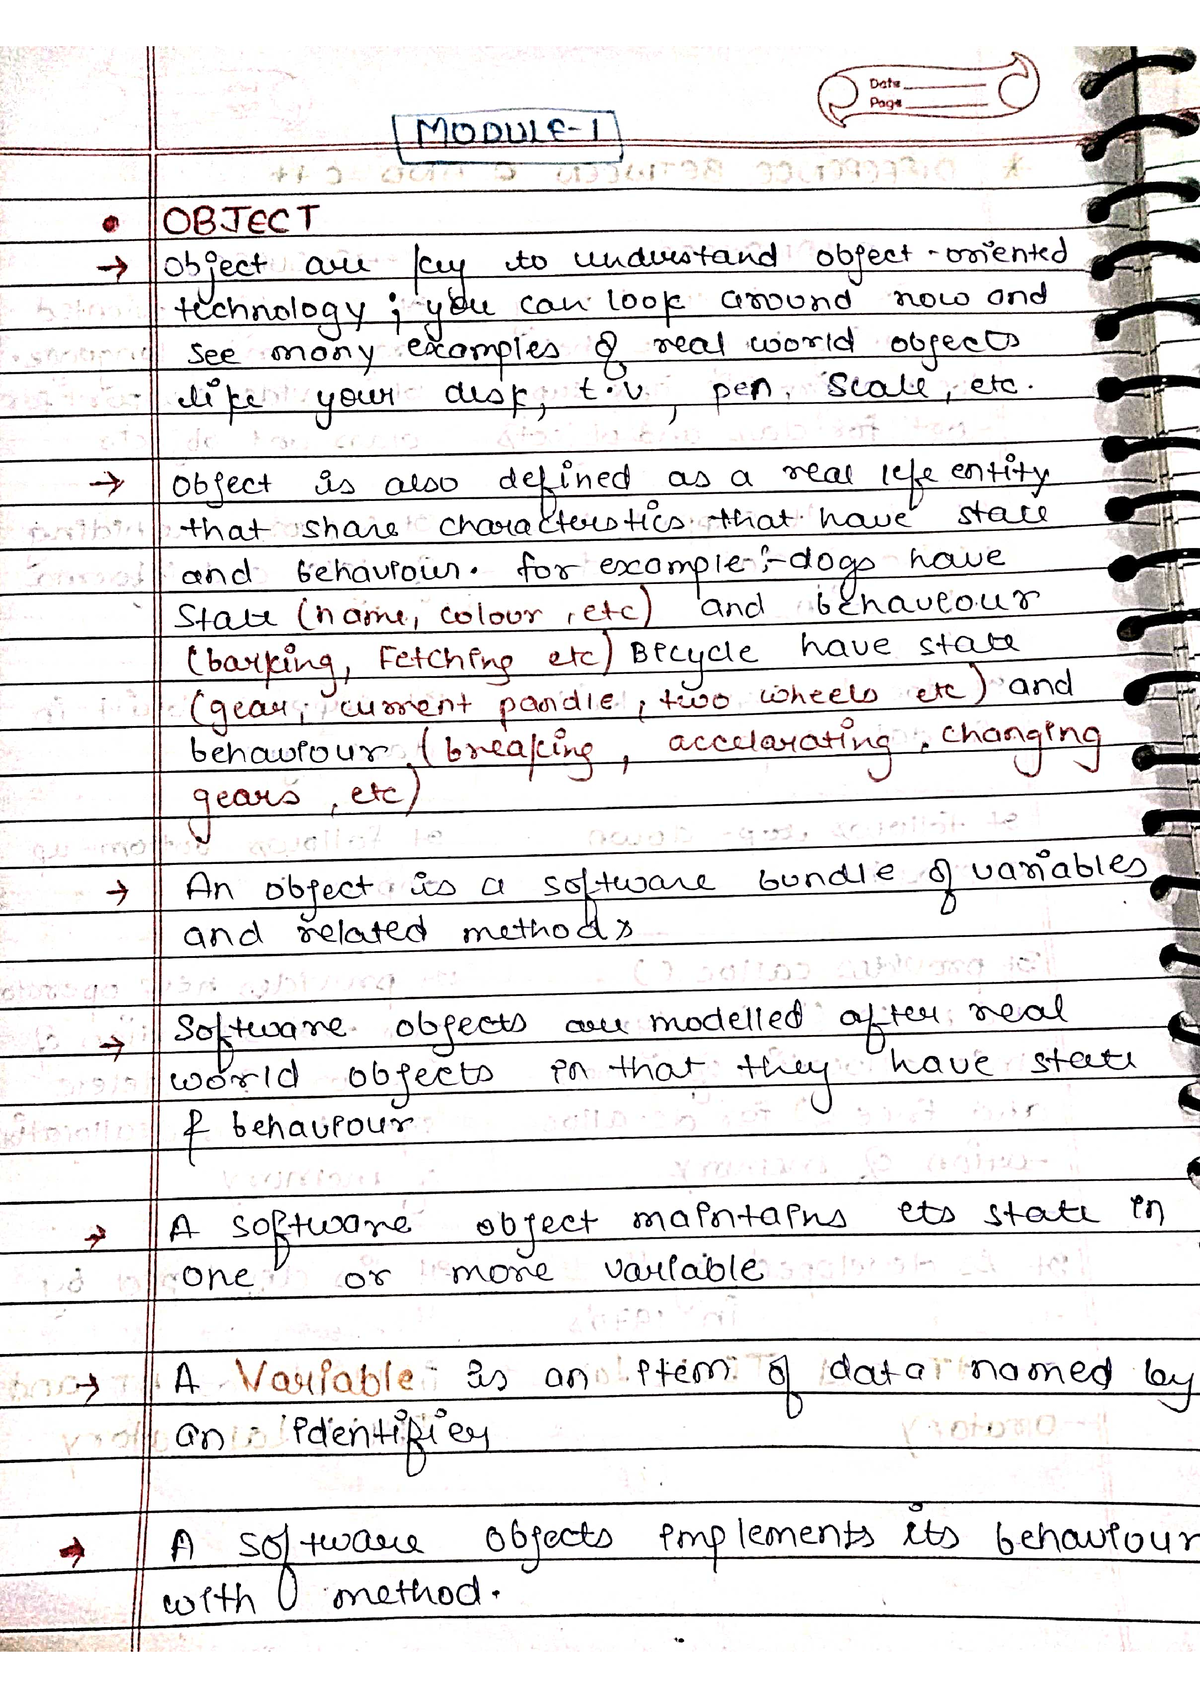 Date
Page
MODULE-1
• OBJECT
→ Object are key to understand object-oriented
technology; you can look around now and
see many examples of real world objects
like your desk, t.v, pen, scale, etc.
→ Object is also defined as a real life entity
that share characteristics that have state
and behaviour. for example:- dogs have
State (name, colour, etc) and behaveour
(barking, Fetching etc) Bicycle have state
(gear, current pandle, two wheels etc) and
behaviour (breaking, accelarating, changing
gears, etc)
→ An object is a software bundle of variables
and related methods
→ Software objects are modelled after real
world objects in that they have state
& behaviour
→ A software object maintains its state in
one or more variable
→ A Variable is an item of data named by
an identifier
→ A software objects implements its behaviour
with method.